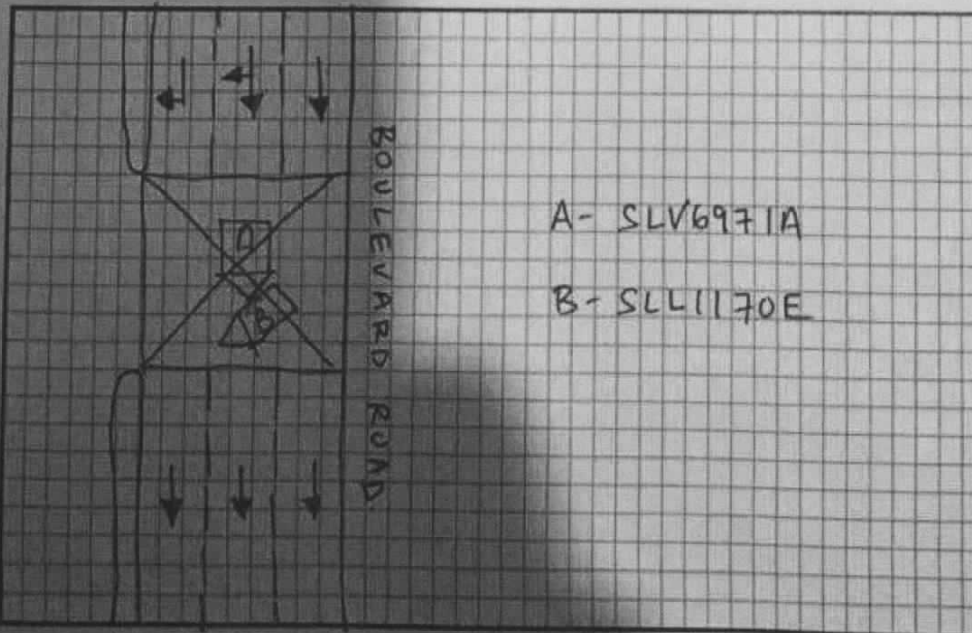 A
B
BOULEVARD ROAD
A- SLV6971A
B- SLL1170E